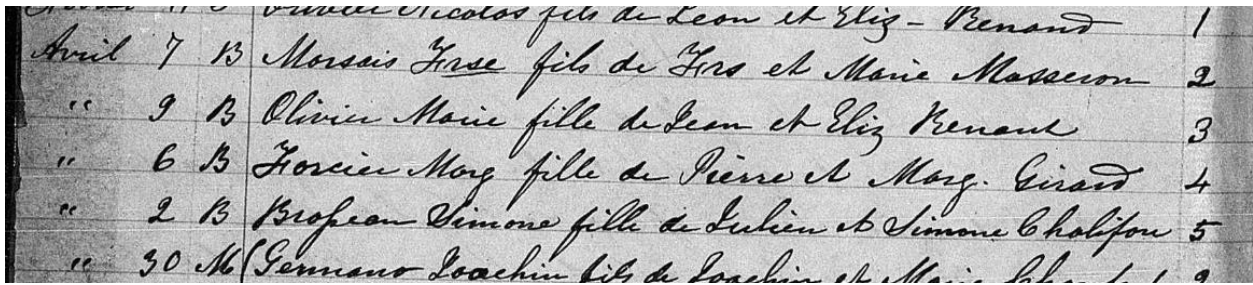 Nicolas fils de Jean et Eliz - Renaud 1
Avril 7 B Marsais Frse fils de Frs et Marie Masseron 2
" 9 B Olivier Marie fille de Jean et Eliz Renaut 3
" 6 B Forcier Marg fille de Pierre et Marg. Girard 4
" 2 B Brosseau Simone fille de Julien et Simone Chalifou 5
" 30 M Germano Joachin fils de Joachin et Marie